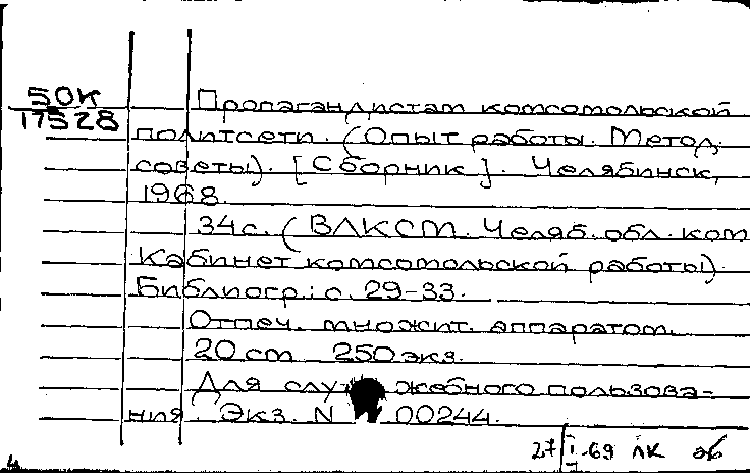 50К
17528
Пропагандистам комсомольской
политсети. (Опыт работы. Метод.
советы). [Сборник]. Челябинск,
1968.
34с. (ВЛКСМ. Челяб. обл. ком
Кабинет комсомольской работы).
Библиогр.: с. 29-33.
Отпеч. множит. аппаратом.
20 cm 250 экз.
Для служебного пользова-
ния. Экз. N 00244.
27/I-69 ЛК
4